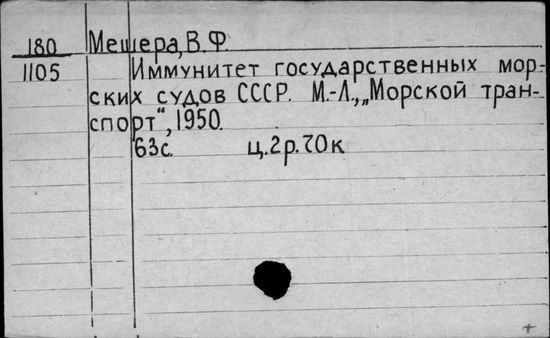 180 Мешера, В.Ф.
1105 Иммунитет государственных мор-
ских судов СССР. М.-Л., „Морской тран-
спорт“, 1950.
63с. ц. 2р. 70к